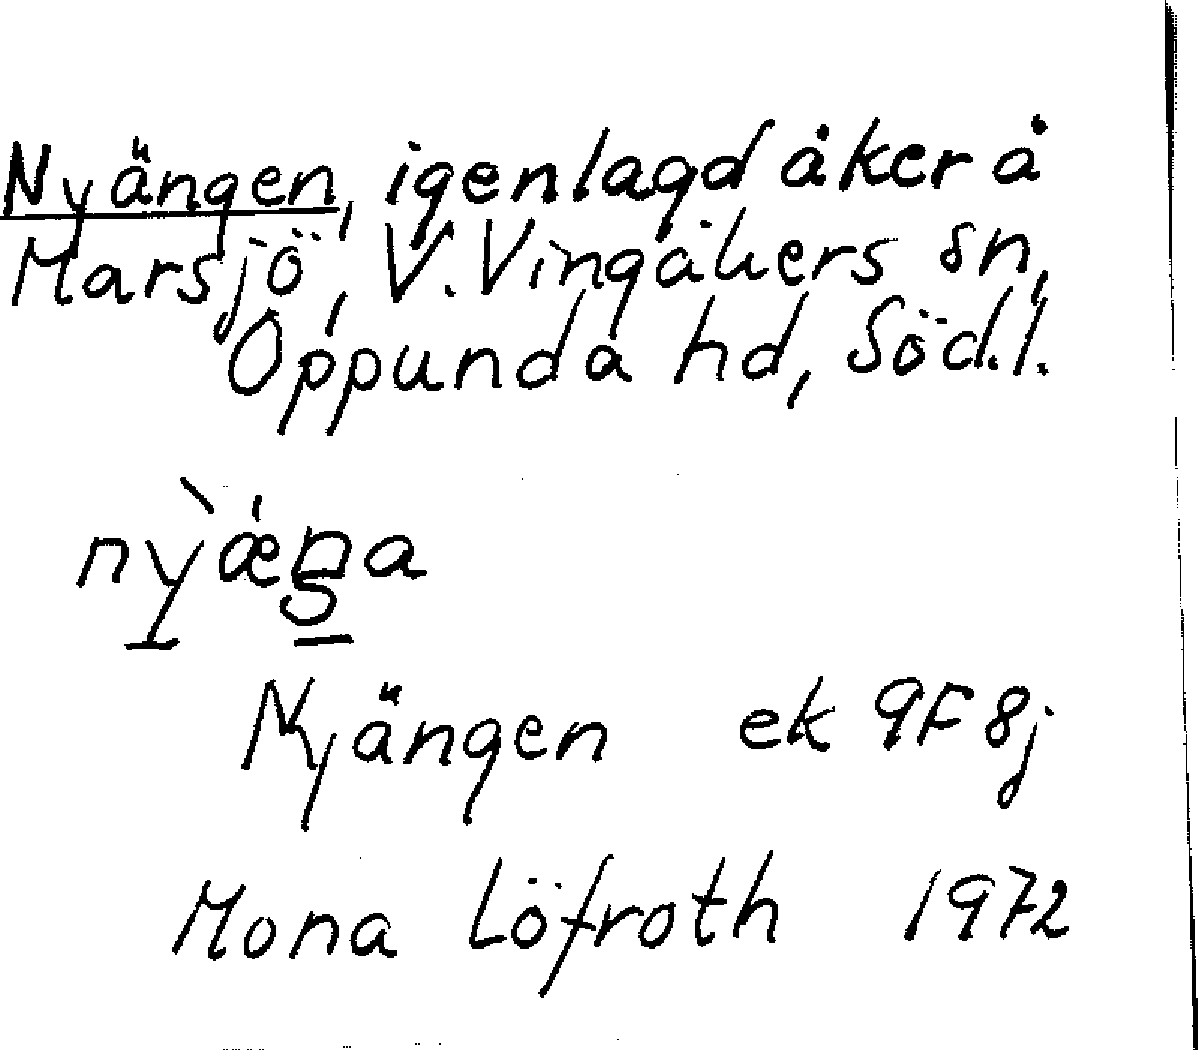 Nyängen, igenlagd åker å
Marsjö, V. Vingåkers sn,
Oppunda hd, Södl.l.
nỳæ̍ŋa
Nyängen ek 9F 8j
Mona Löfroth 1972